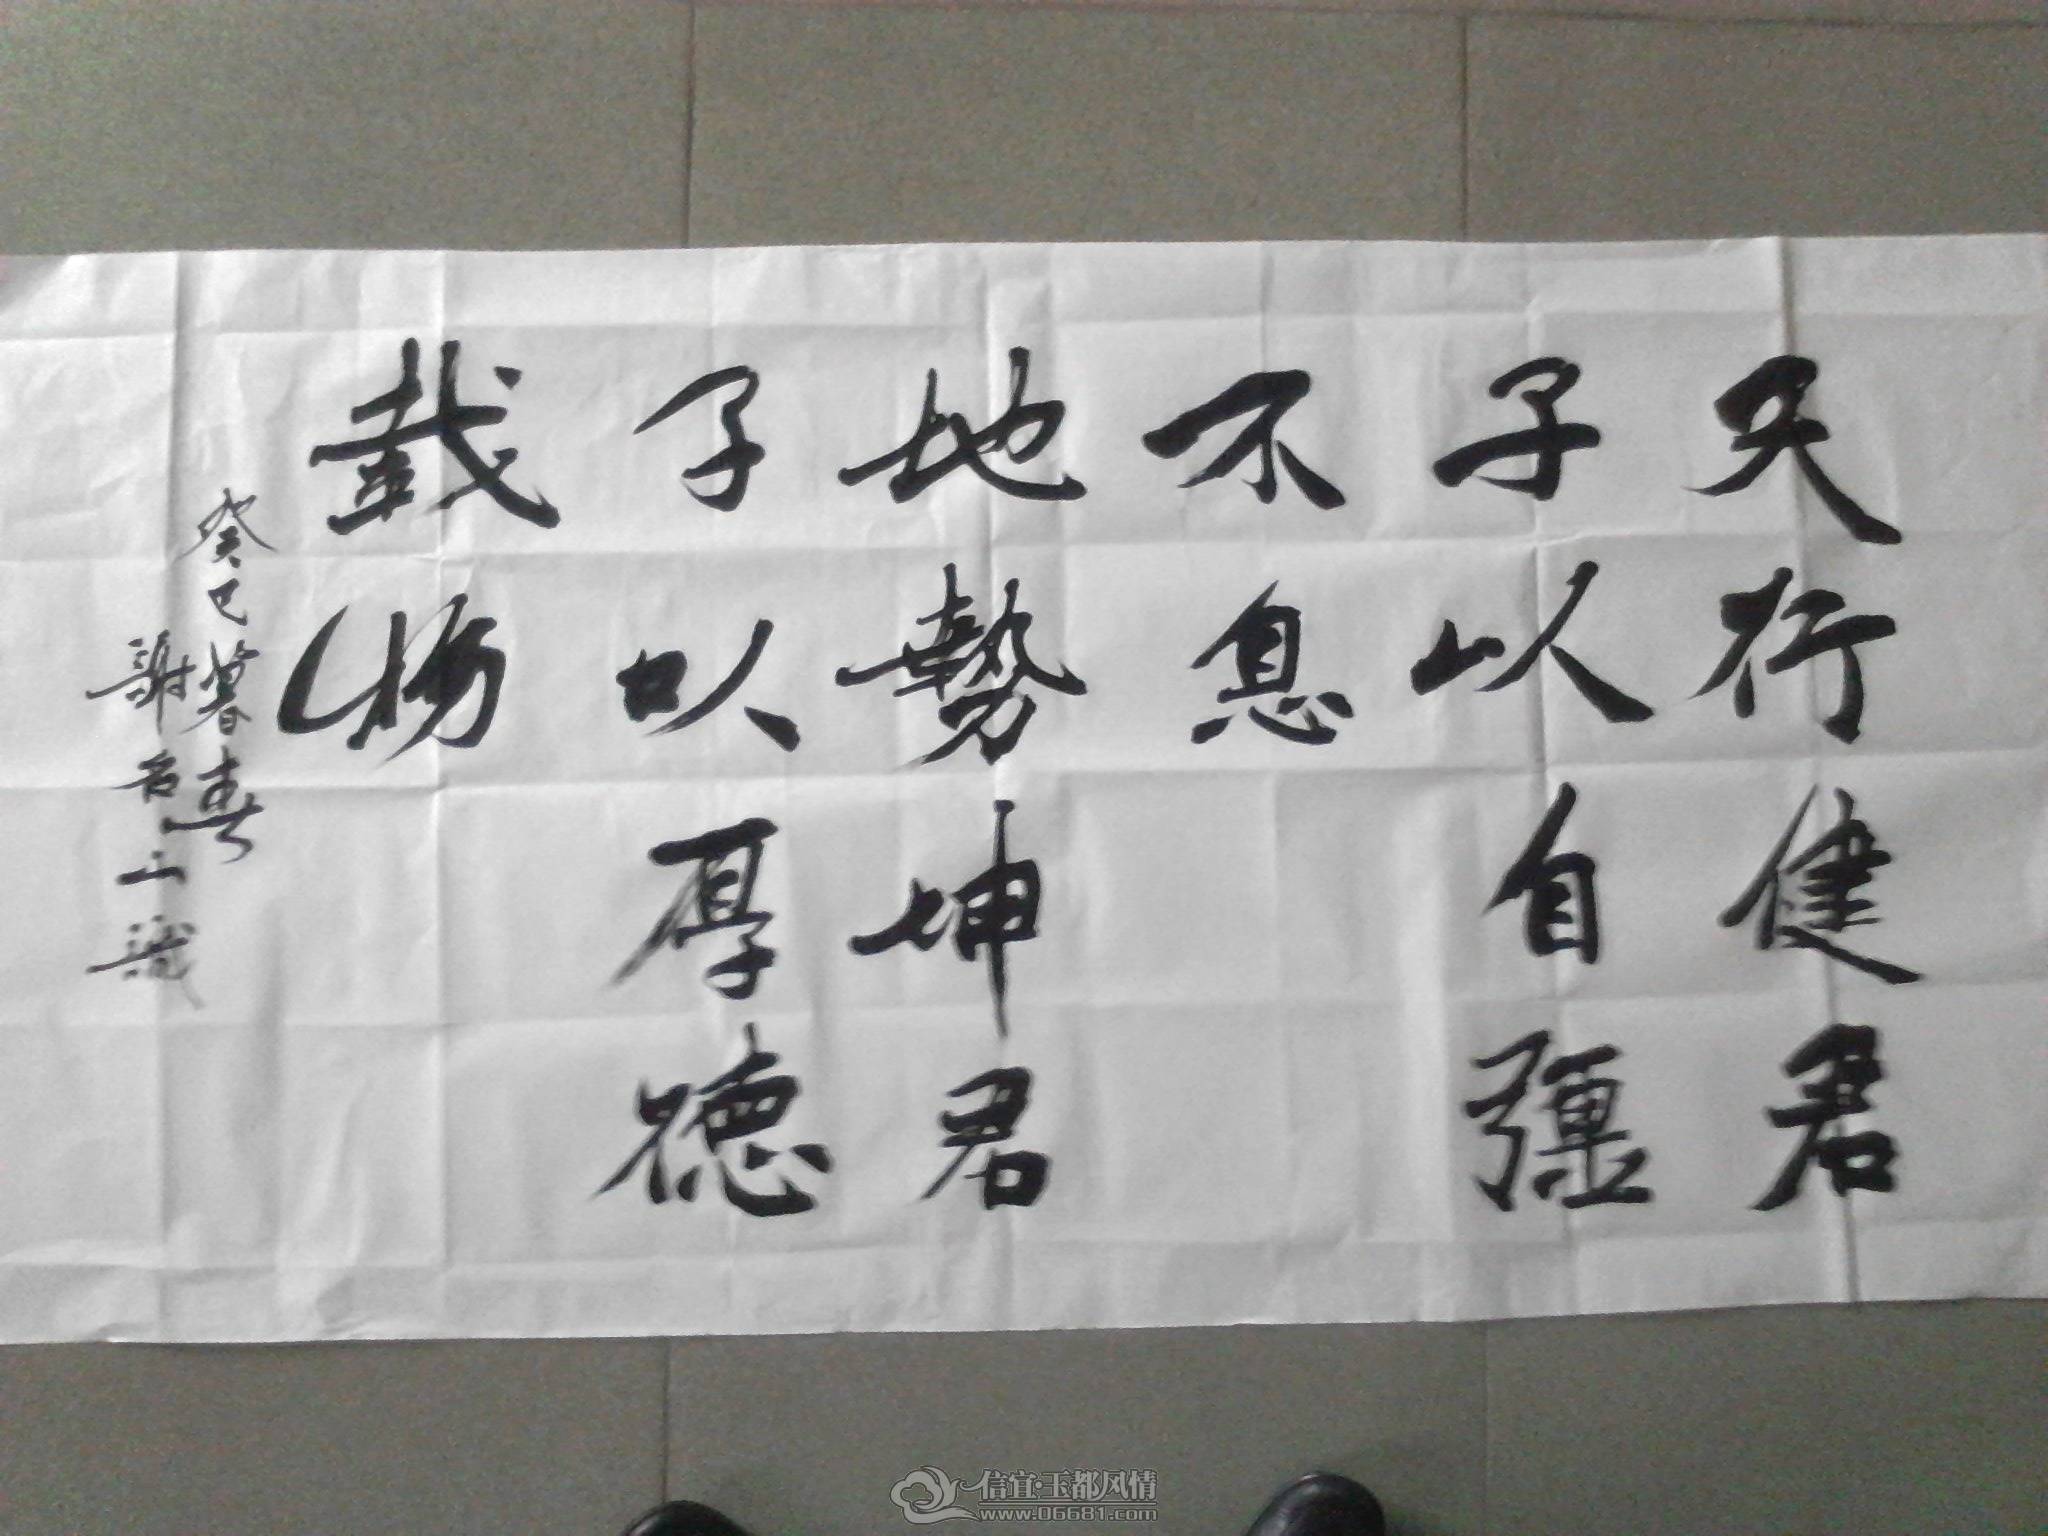 天行健君
子以自彊
不息
地勢坤君
子以厚德
載物
癸巳暮春
謝
信宜·玉都风情
www.06681.com